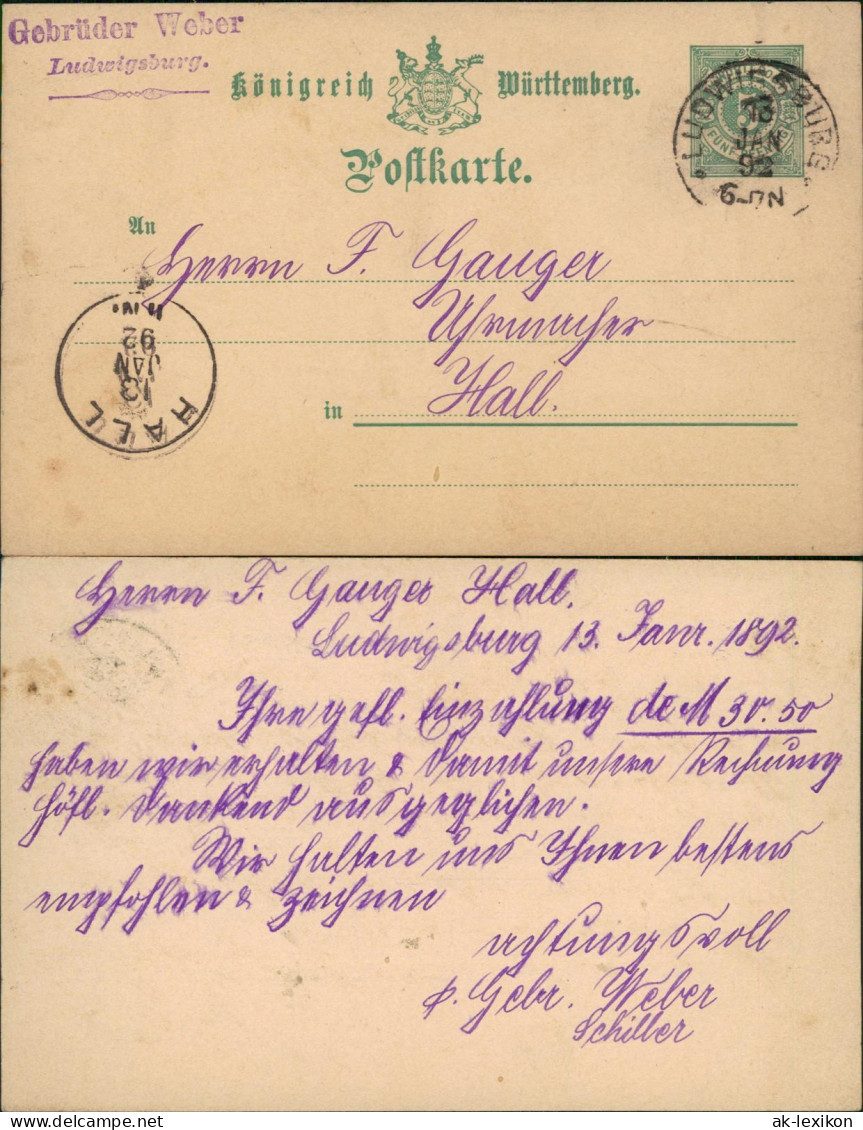 Gebrüder Weber
Ludwigsburg.
Königreich Württemberg.
Postkarte.
LUDWIGSBURG
13
JAN
92
6-7N
FÜNF PFENNIG
An
Herrn F. Gauger
Uhrmacher
in Hall.
HALL
13
JAN
92
Herrn F. Gauger Hall.
Ludwigsburg 13. Janr. 1892.
Ihre gefl. Einzahlung de M 30.50
haben wir erhalten & damit unsere Rechnung
höfl. dankend ausgeglichen.
Wir halten uns Ihnen bestens
empfohlen & zeichnen
achtungsvoll
p. Gebr. Weber
Schiller
© ak-lexikon.de
ak-lexikon